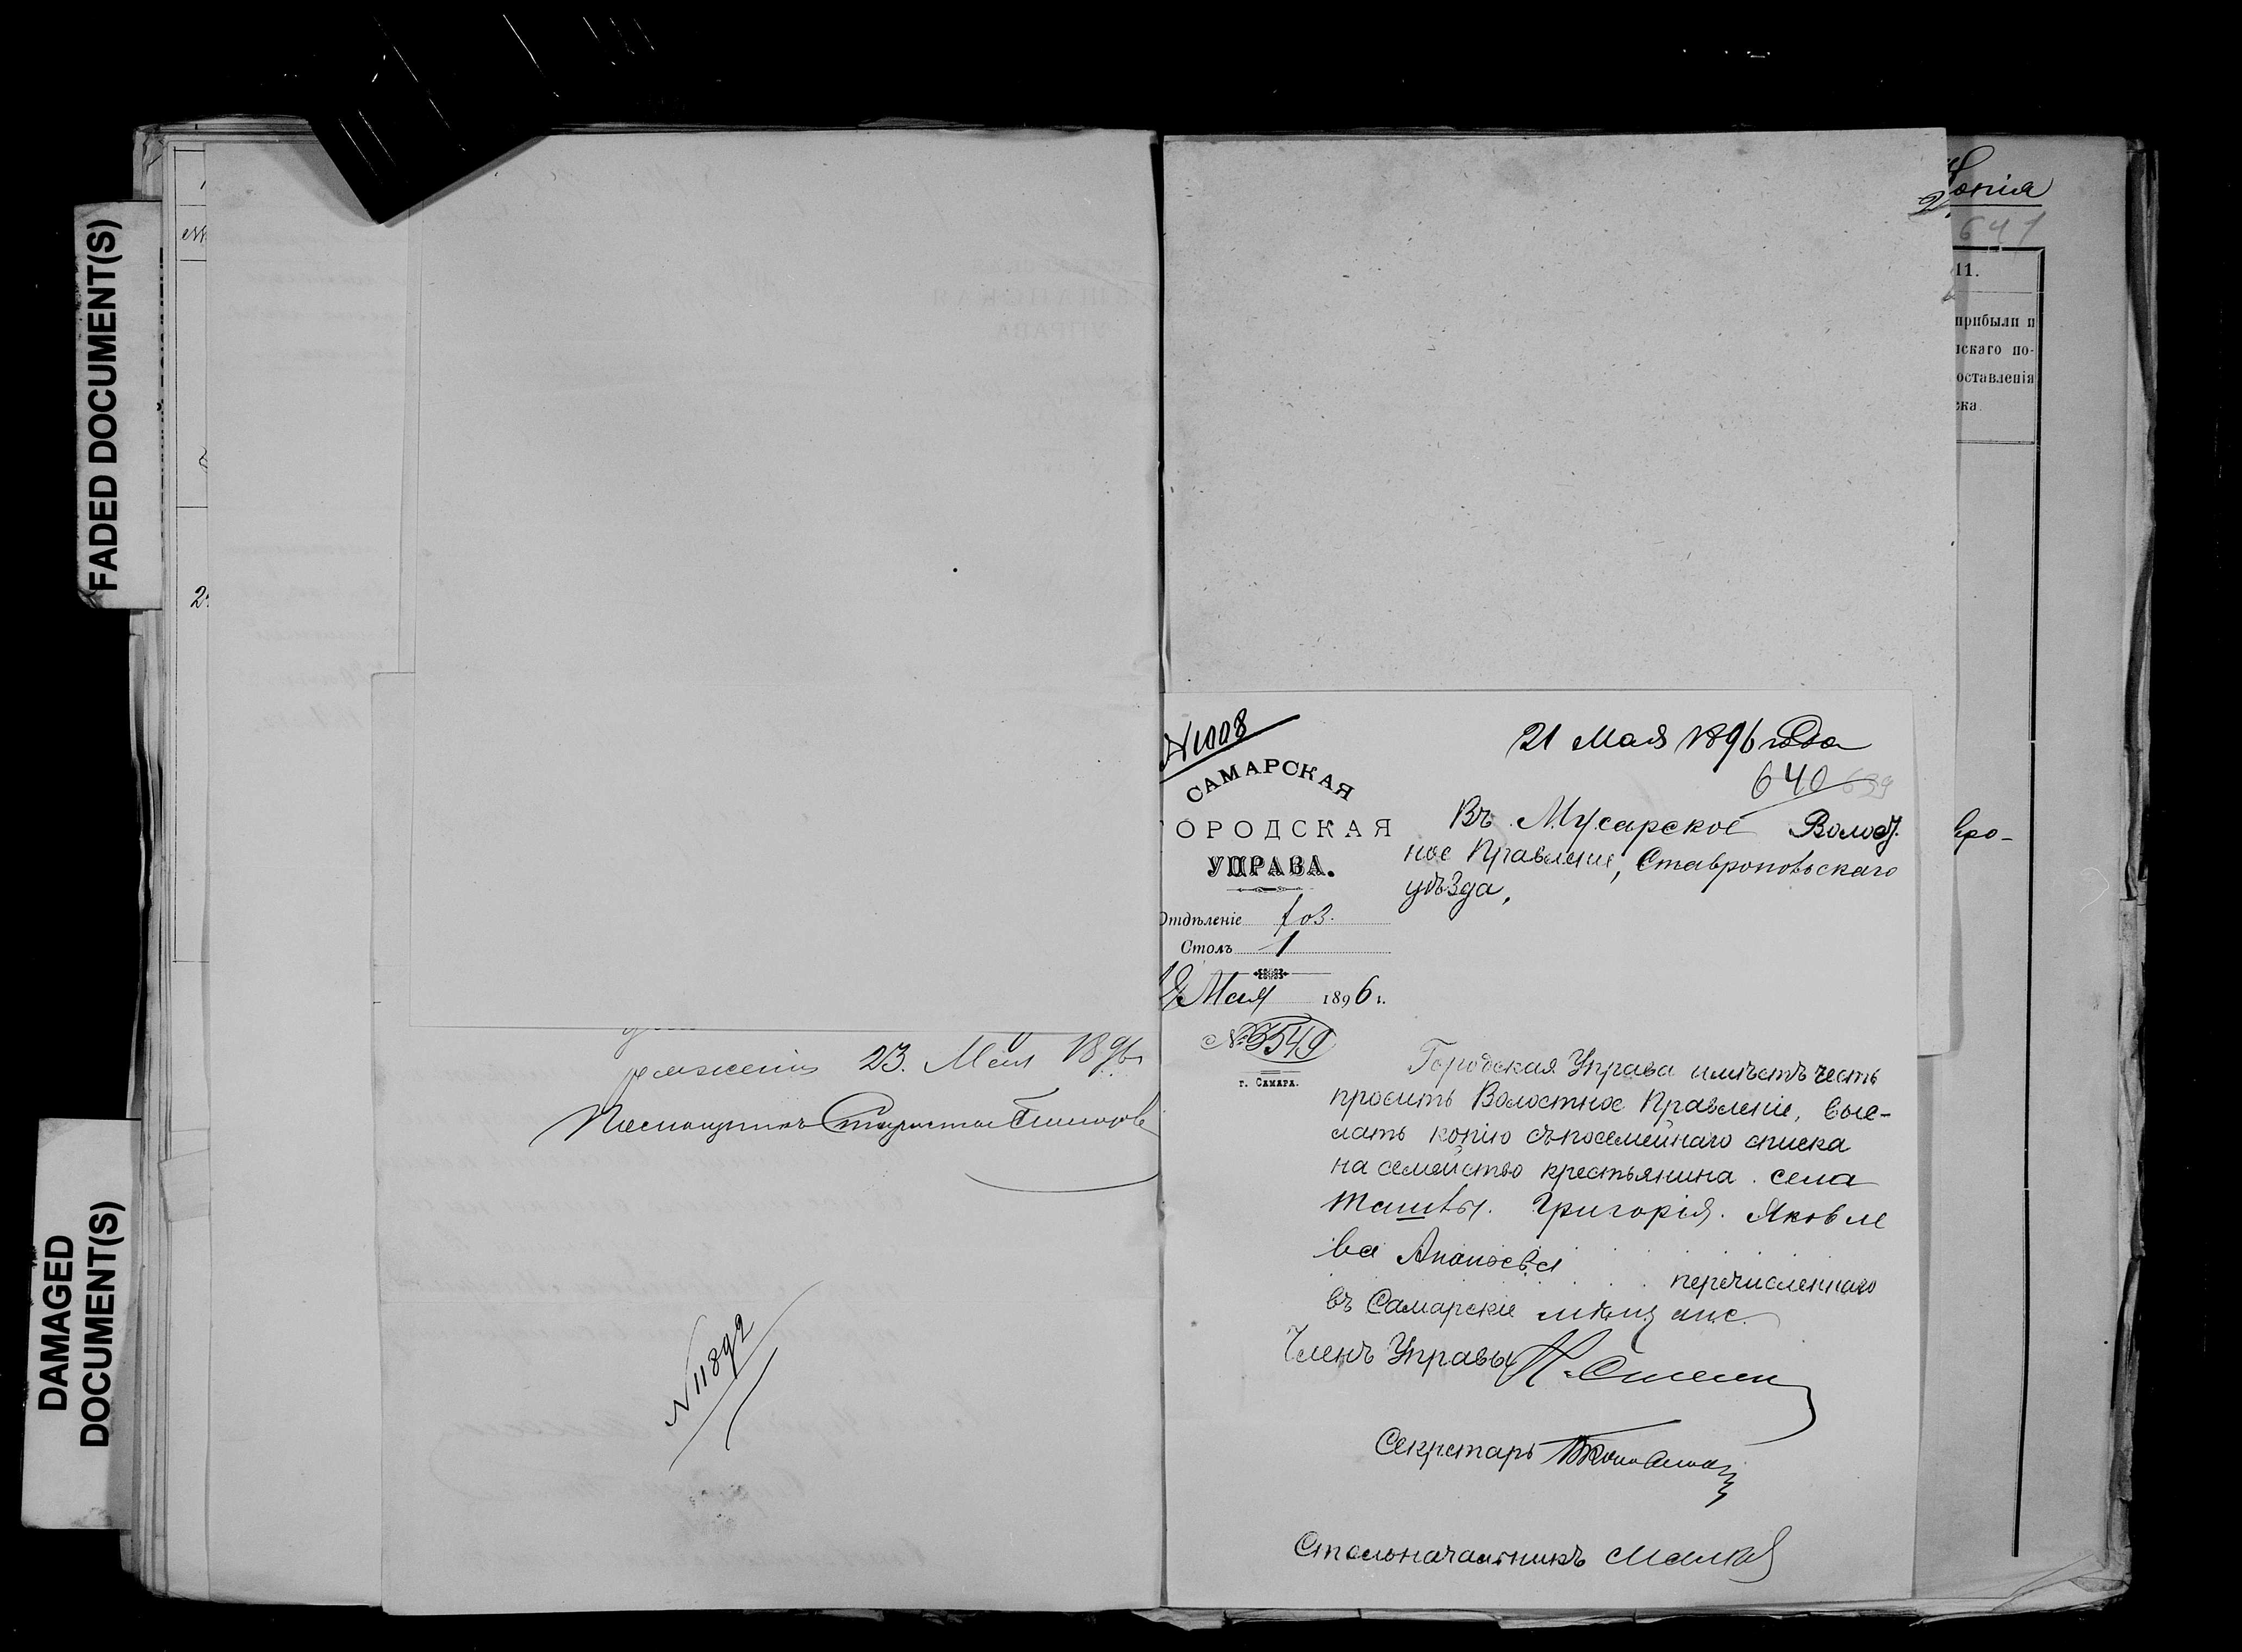 FADED DOCUMENT(S)
DAMAGED
DOCUMENT(S)
23. Мая 1896
Староста
N 11892
Копія
641
11.
прибыли и
скаго по-
оставленія
ска
N 1008
САМАРСКАЯ
ОРОДСКАЯ
УПРАВА.
Отдѣленіе Хоз.
Столъ 1
Мая 1896 г.
№ 3549
г. САМАРА.
21 Мая 1896 года
640 639
Въ Мусарское Волост.
ное Правленіе, Ставропольскаго
уѣзда,
Городская Управа имѣетъ честь
просить Волостное Правленіе, выс-
лать копію съ посемейнаго списка
на семейство крестьянина села
Ташлы. Григорія. Яковле
ва
перечисленнаго
въ Самарскіе мѣщане.
Членъ Управы
Секретарь
Столоначальникъ